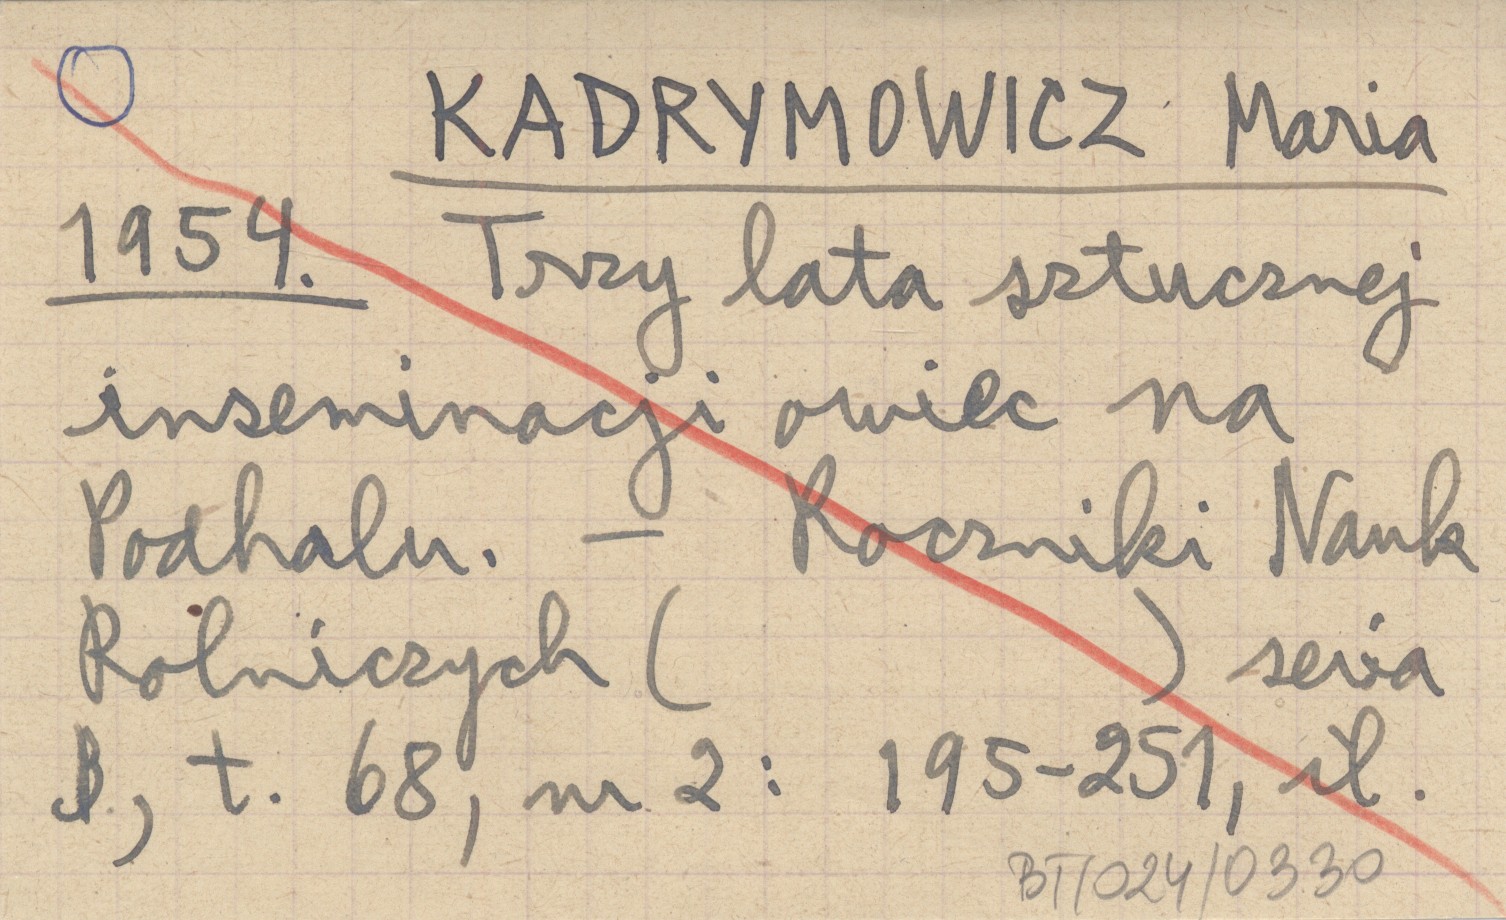 KADRYMOWICZ Maria
1954. Trzy lata sztucznej
inseminacji owiec na
Podhalu. — Roczniki Nauk
Rolniczych (          ) seria
B, t. 68, nr 2: 195-251, il.
BT/024/0330